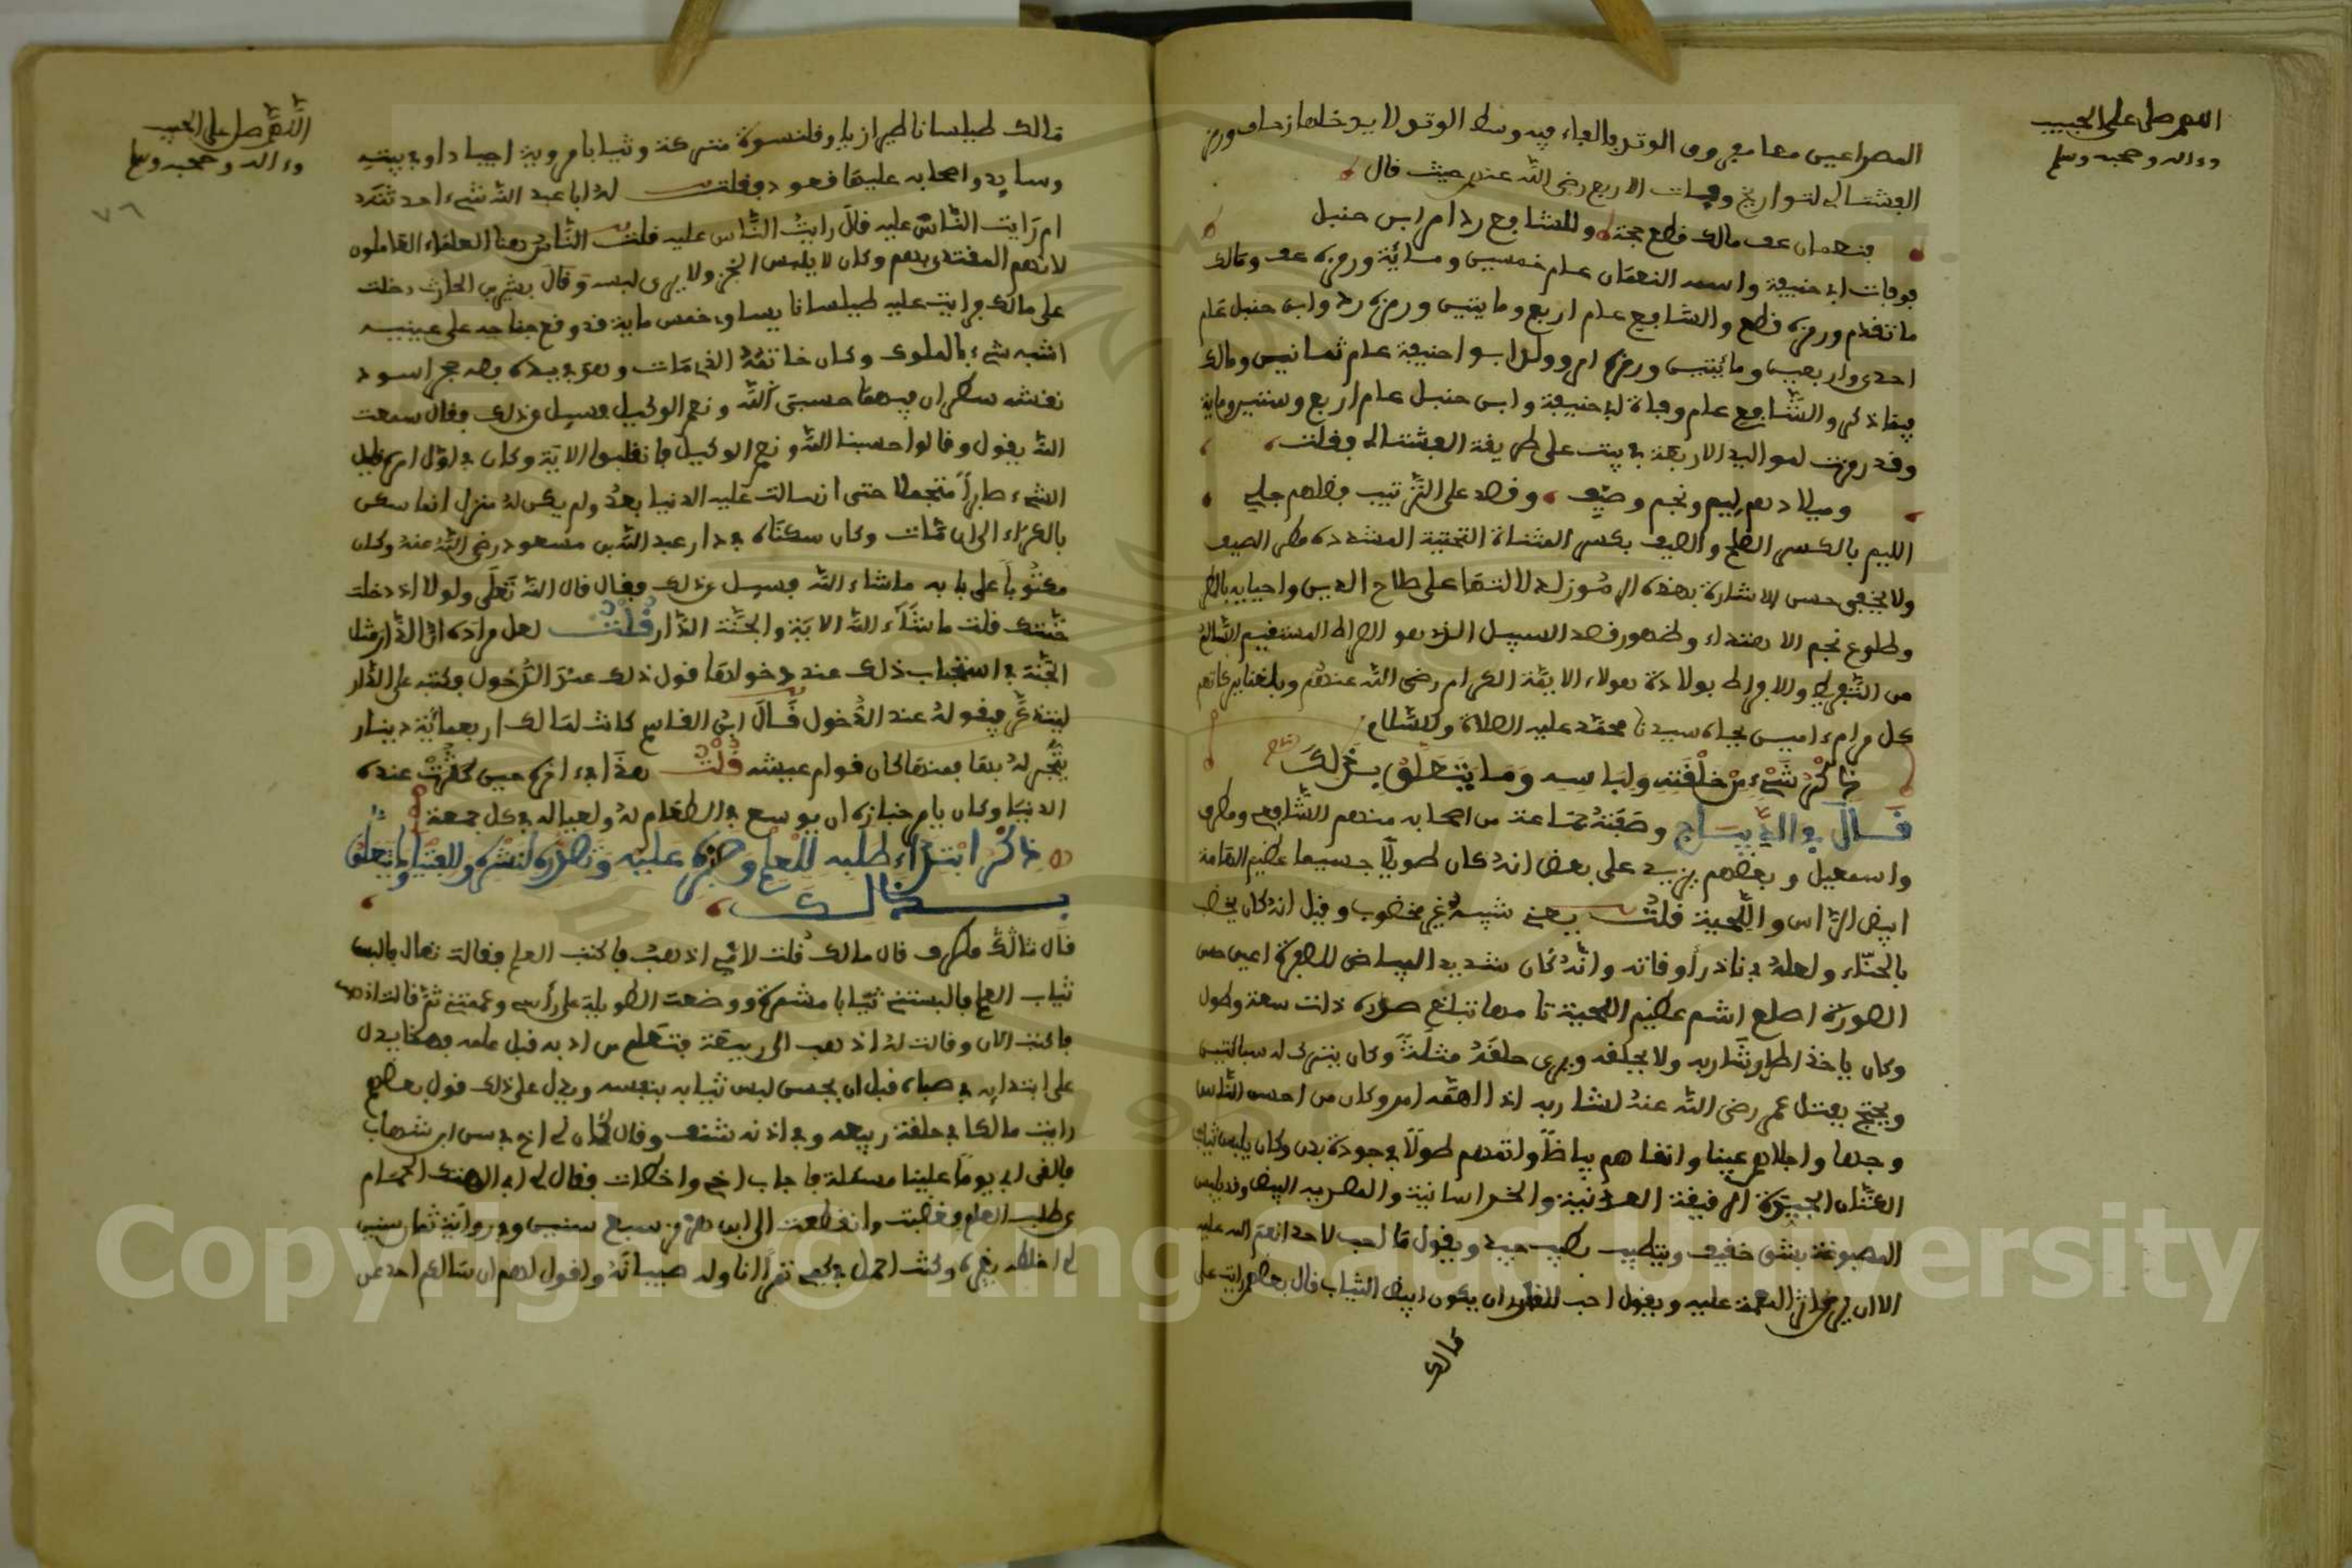 اللهم صل على الحبيب
وءاله وصحبه وسلم
المصراعين معا مفروق الوتد بالفاء فيه وسط الوتد لا يدخلها زحاف ورمز
الفشتالي لتواريخ وفيات الاربع رضي الله عنهم حيث قال
فنعمان عف مالك قطع حجة وللشافع رد ام ابن حنبل
فوفات ابي حنيفة واسمه النعمان عام خمسين ومائة ورمزه عف ومالك
ما تقدم ورمزه قطع والشافعي عام اربع ومايتين ورمزه رد وابن حنبل عام
احدى واربعين ومائتين ورمزه ام وولد ابو احنيفة عام ثمانين ومالك
فيما ذكر والشافعي عام وفاة ابي حنيفة وابن حنبل عام اربع وستين ومائة
وقد رمزت لمواليد الاربعة في بيت على طريقة الفشتالي فقلت
وميلادهم لييم ونجم وصيف وقصد على الترتيب فضلهم جلي
اللييم بالكسر الصلح والصيف بكسر المثناة التحتية المشددة مطر الصيف
ولا يخفى حسن الاشارة بهذه الرموز لدلالتها على صلاح الدين واحيايه بالمطر
وطلوع نجم الاهتداء وظهور قصد السبيل الذي هو الصراط المستقيم السالم
من التفريط والافراط بولادة هولاء الايمة الكرام رضي الله عنهم وبلغنا ببركاتهم
كل مرام ءامين بجاه سيدنا محمد عليه الصلاة والسلام
ذكر شيء من خلقته ولباسه وما يتعلق بذلك
قال في الديباج وصفه جماعة من اصحابه منهم الشافعي ومطرف
واسمعيل وبعضهم يزيد على بعض انه كان طويلا جسيما عظيم القامة
ابيض الراس واللحية قلت يعني شيبه غير مخضوب وقيل انه كان يخضب
بالحناء ولعله في نادر اوقاته وانه كان شديد البياض للصفرة اعين حسن
الصورة اصلع اشم عظيم اللحية تامها تبلغ صدره ذات سعة وطول
وكان ياخذ اطار شاربه ولا يحلقه ويرى حلقه مثلة وكان يترك له سبالتين
ويحتج بفتل عمر رضي الله عنه لشاربه اذا اهمه امر وكان من احسن الناس
وجها واجلاهم عينا وانقاهم بياضا واتمهم طولا في جودة بدن وكان يلبس الثياب
العدنية الجيدة الرفيعة والخراسانية والمصرية البيض وقد يلبس
المصبوغة بشيء خفيف ويتطيب بطيب جيد ويقول ما احب لاحد انعم الله عليه
الا ان يرى اثر النعمة عليه ويقول احب للقارئ ان يكون ابيض الثياب قال بعضهم رايت على
مالك
اللهم صل على الحبيب
وءاله وصحبه وسلم
٧٦
مالك طيلسانا طرازيا وقلنسوة متركة وثيابا مروية جيادا وفي بيته
وسايد واصحابه عليها قعود فقلت له ابا عبد الله شيء احدثته
ام رايت الناس عليه قال رايت الناس عليه قلت الناس هنا العلماء العاملون
لانهم المقتدى بهم وكان لا يلبس الخز ولا يرى لبسه وقال بشر بن الحارث دخلت
على مالك فرايت عليه طيلسانا يساوي خمس ماية قد وقع جناحه على عينيه
اشبه شيء بالملوك وكان خاتمه الذي مات وهو في يده فصه حجر اسود
نقشه سطران فيهما حسبي الله ونعم الوكيل فسيل عن ذلك فقال سمعت
الله يقول وقالوا حسبنا الله ونعم الوكيل فانقلبوا الاية وكان في اول امره قليل
الشيء صابرا متجملا حتى انسالت عليه الدنيا بعد ولم يكن له منزل انما سكن
بالكراء الى ان مات وكان سكناه في دار عبد الله بن مسعود رضي الله عنه وكان
مكتوبا على بابه ما شاء الله فسيل عن ذلك فقال قال الله تعلى ولولا اذ دخلت
جنتك قلت ما شاء الله الاية والجنة الدار قلت لعل مراده ان الدار مثل
الجنة في استحباب ذلك عند دخولها قول ذلك عند الدخول وكتبه على الدار
ليتذكر فيقوله عند الدخول قال ابن القاسم كانت لمالك اربعمائة دينار
يتجر له بها فمنها كان قوام عيشه قلت هذا في اخره حين كثرت عنده
الدنيا وكان يامر خبازه ان يوسع في الطعام له ولعياله في كل جمعة
ذكر ابتداء طلبه للعلم وصبره عليه وتصدره لنشره وللفتيا وما يتعلق
بذلك
قال مطرف قال مالك قلت لامي اذهب فاكتب العلم فقالت تعال فالبس
ثياب العلم فالبستني ثيابا مشمرة ووضعت الطويلة على راسي وعممتني ثم قالت اذهب
فاكتب الان وقالت له اذهب الى ربيعة فتعلم من ادبه قبل علمه فهذا يدل
على ابتدايه في صباه قبل ان يحسن لبس ثيابه بنفسه ويدل على ذلك قول بعضهم
رايت مالكا في حلقة ربيعة وفي اذنه شنف وقال كان لي اخ في سن ابن شهاب
فالقى ابي يوما علينا مسئلة فاجاب اخي واخطات فقال لي ابي الهتك الحمام
عن طلب العلم فغضبت وانقطعت الى ابن هرمز سبع سنين وفي رواية ثمان سنين
لم اخلطه بغيره وكنت اجعل في كمي تمرا اناوله صبيانه واقول لهم ان سالكم احد عن